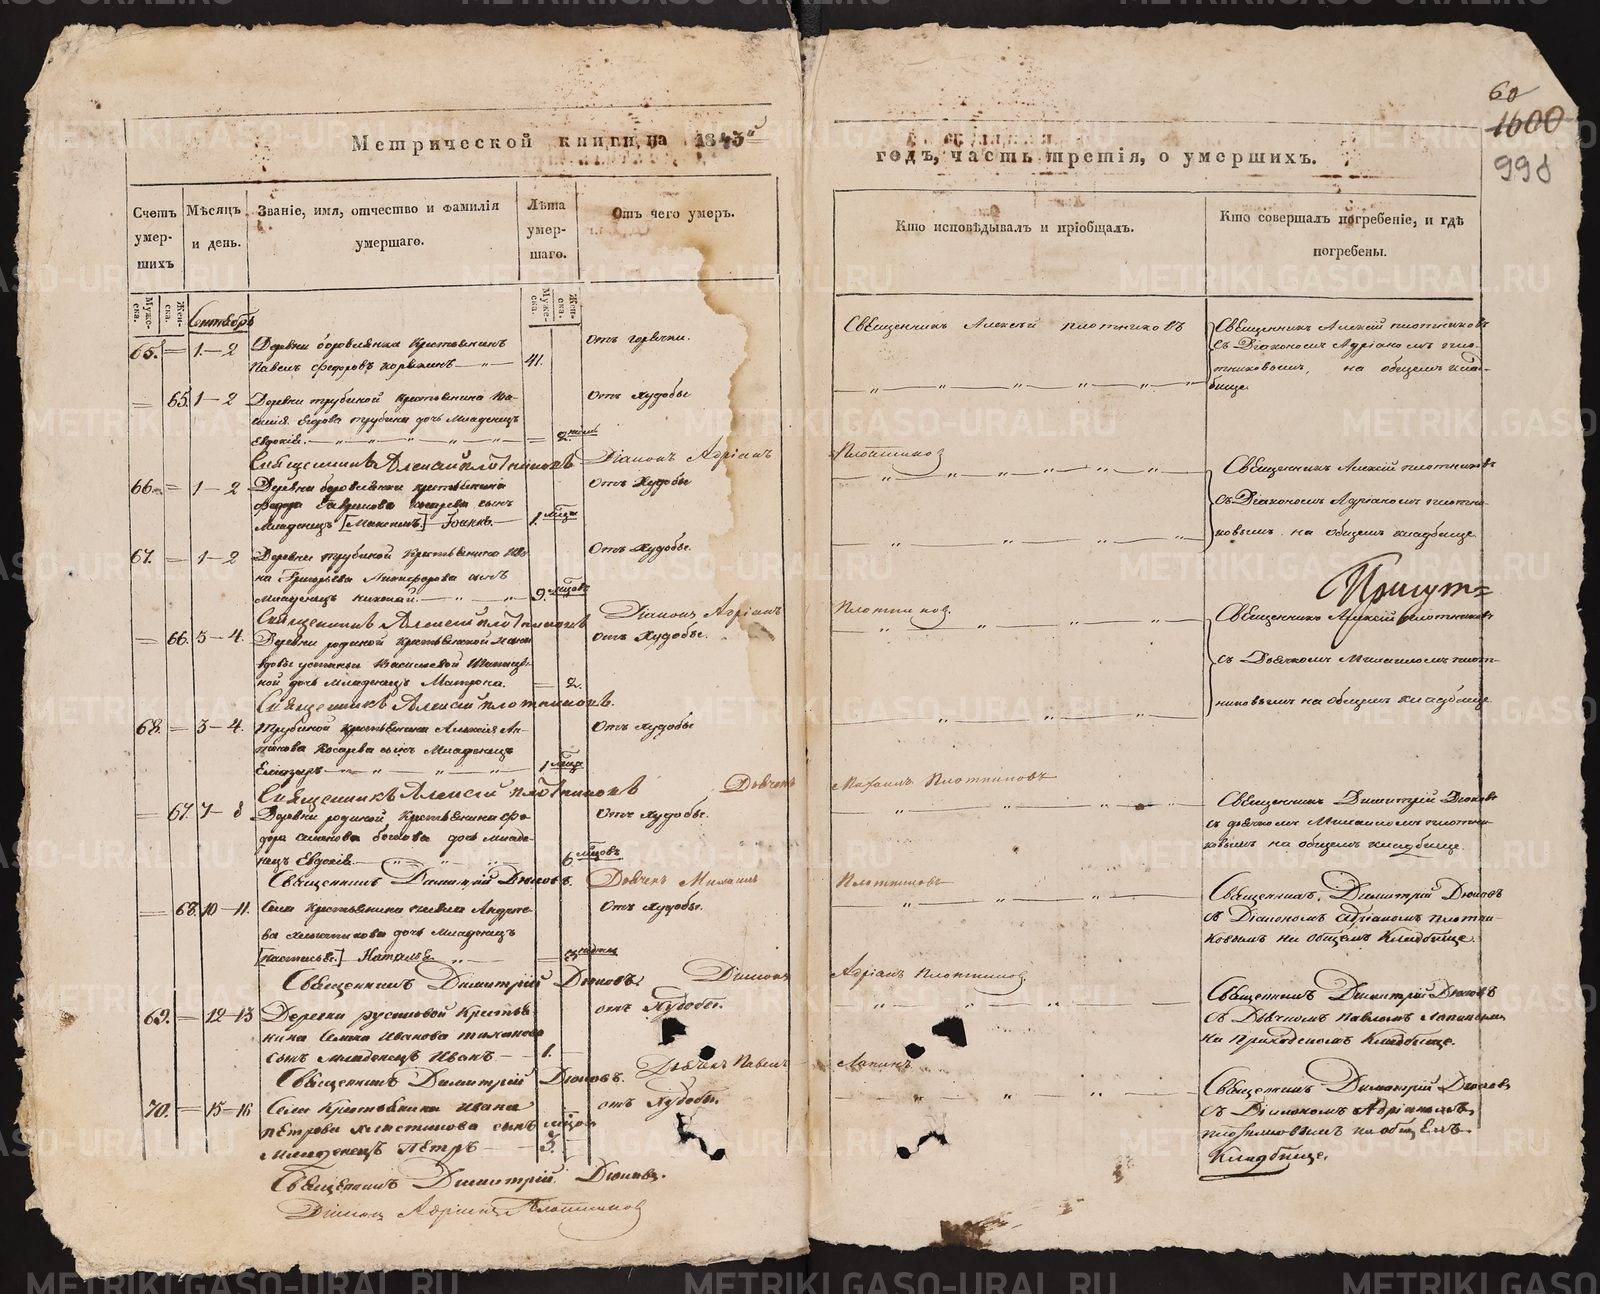 Метрической книги, на 1843й
годъ, часть третія, о умершихъ.
60
1600
998
Счетъ умер- шихъ
Мѣсяцъ и день.
Званіе, имя, отчество и фамилія умершаго.
Лѣта умер- шаго.
Отъ чего умеръ.
Кто исповѣдывалъ и пріобщалъ.
Кто совершалъ погребеніе, и гдѣ погребены.
Муже- ска.
Жен- ска.
Муже- ска.
Жен- ска.
Сентябрь
65. 1–2 Деревни боровлянка Крестьянинъ
Павелъ Федоровъ 41.
Отъ горячки.
Священникъ Алексѣй Плотниковъ
Священникъ Алексѣй Плотниковъ
съ Діакономъ Адріаномъ Плот-
никовымъ, на общемъ клад-
бище.
65. 1–2 Деревни трубиной Крестьянина Ва-
силія Егорова трубина дочь Младенецъ
Евдокія. 2
Отъ худобы
Священникъ Алексѣй Плотниковъ Діаконъ Адріанъ Плотниковъ
66. 1–2 Деревни боровлянки крестьянина
Федора Гаврилова Косарева сынъ
Младенецъ [Максимъ.] Іоаннъ. 1.
Отъ худобы
Священникъ Алексѣй Плотниковъ
съ Діакономъ Адріаномъ Плотни-
ковымъ на общемъ кладбище
67. 1–2 Деревни трубиной Крестьянина Ива-
на Григорьева Никифорова сынъ
Младенецъ Николай. 9.
Отъ худобы.
Священникъ Алексѣй Плотниковъ Діаконъ Адріанъ Плотниковъ.
66. 3–4. Деревни родиной Крестьянской
вдовы устиньи Василіевой
ной дочь Младенецъ Матрона. 2.
отъ худобы.
Священникъ Алексѣй Плотниковъ
съ Дьячкомъ Михаиломъ Плот-
никовымъ на общемъ кладбище
Священникъ Алексѣй Плотниковъ.
68. 3–4. Трубиной крестьянина Алексія Ан-
Косарева сынъ Младенецъ
1
Отъ худобы
Священникъ Алексѣй Плотниковъ Дьячекъ Михаилъ Плотниковъ
67. 7–8 Деревни родиной Крестьянина Фе-
дора Семенова дочь младе-
нецъ Евдокія. 6
Отъ худобы.
Священникъ Димитрій Дюковъ
съ дьячкомъ Михаиломъ Плотни-
ковымъ на общемъ кладбище.
Священникъ Димитрій Дюковъ. Дьячекъ Михаилъ Плотниковъ
68. 10–11. Села Крестьянина Павла Андрее-
ва дочь Младенецъ
[Настасья.] Наталья
Отъ худобы.
Священникъ, Димитрій Дюковъ
съ Діакономъ Адріаномъ Плотни-
ковымъ на общемъ Кладбище.
Священникъ Димитрій Дюковъ. Діаконъ Адріанъ Плотниковъ.
69. 12–13 Деревни русиновой Крестья-
нина Ивана
сынъ Младенецъ Иванъ 1.
отъ худобы.
Священникъ Димитрій Дюковъ
съ Дьячкомъ Павломъ Лапинымъ
на приходскомъ Кладбище.
Священникъ Димитрій Дюковъ. Дьячекъ Павелъ Лапинъ.
70. 15–16 Села Крестьянина Ивана
Петрова сынъ
Младенецъ Петръ 3.
отъ худобы.
Священникъ Димитрій Дюковъ
съ Діакономъ Адріаномъ
Плотниковымъ на общемъ
Кладбище.
Священникъ Димитрій Дюковъ.
Діаконъ Адріанъ Плотниковъ
METRIKI.GASO-URAL.RU